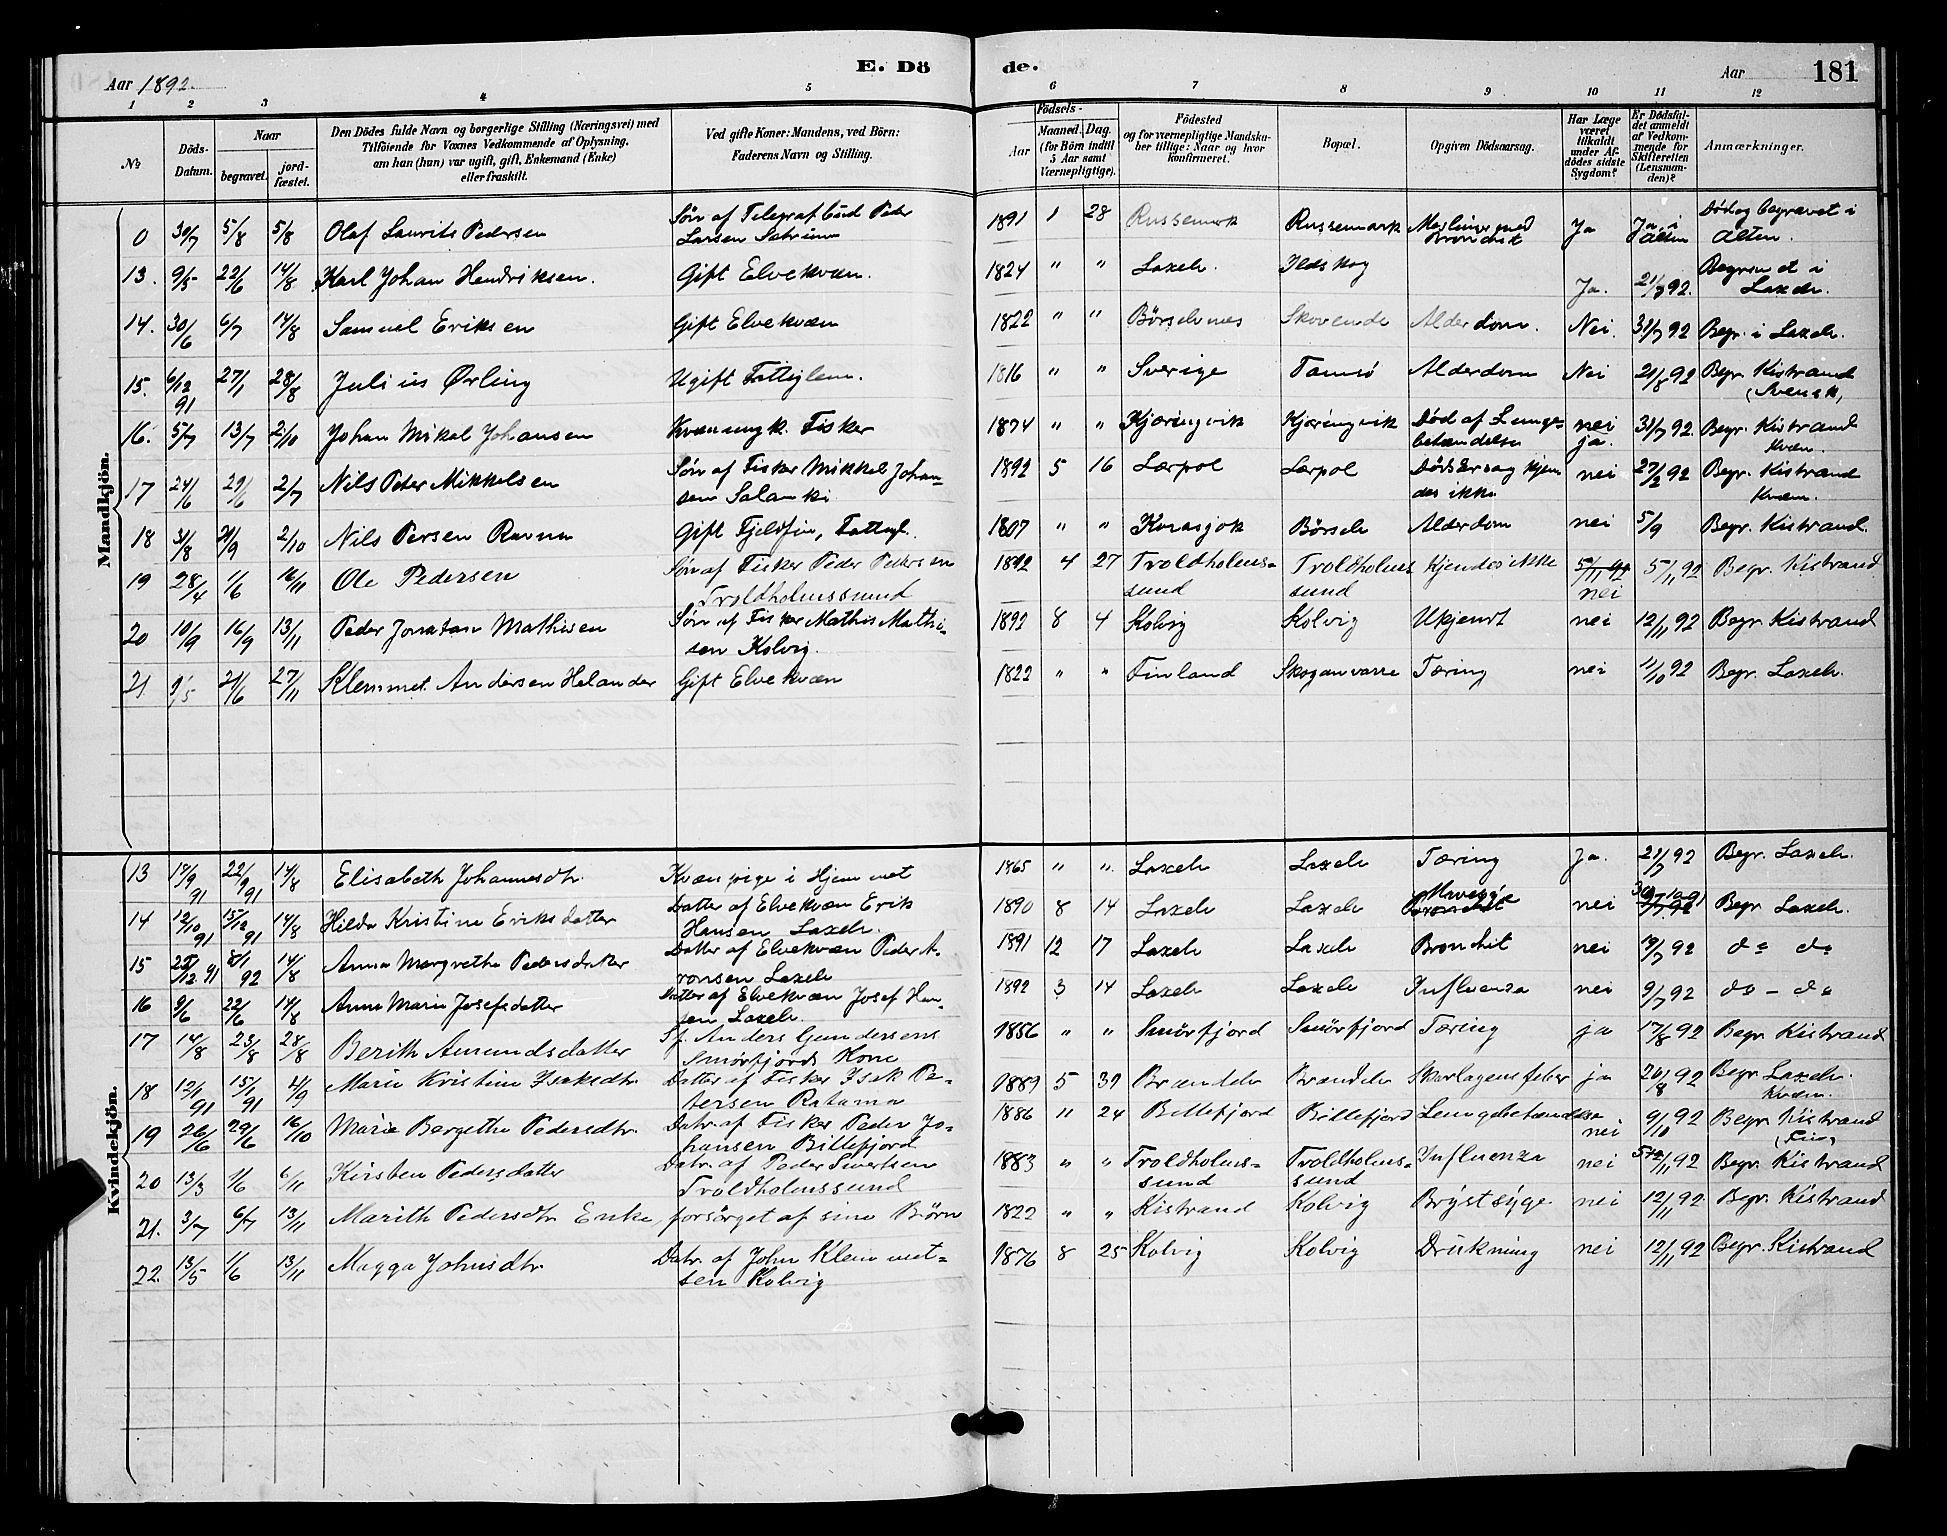 Aar 1892. E. Dö de. Aar 181
1 2 3 4 5 6 7 8 9 10 11 12
No Döds-Datum. Naar begravet. jord-fæstet. Den Dödes fulde Navn og borgerlige Stilling (Næringsvei) med Tilföiende for Voxnes Vedkommende af Oplysning, om han (hun) var ugift, gift, Enkemand (Enke) eller fraskilt. Ved gifte Koner: Mandens, ved Börn: Faderens Navn og Stilling. Födsels- Aar Maaned. Dag. (for Börn indtil 5 Aar samt Værnepligtige). Födested og for værnepligtige Mandska-ber tillige: Naar og hvor konfirmeret. Bopæl. Opgiven Dödsaarsag. Har Læge været tilkaldt under Af-dödes sidste Sygdom? Er Dödsfal-det anmeldt af Vedkom-mende for Skifteretten (Lensman-den)? Anmærkninger.
Mandkjön.
0 30/7 5/8 5/8 Olaf Laurits Pedersen Sön af Telegrafbud Peder 1891 1 28 Russemark Russemark Meslinger med Ja Ja, i Död og begravet i
Larsen Bronchit Alten Alten.
13. 9/5 22/6 14/8 Karl Johan Hendriksen. Gift Elvekvæn. 1824 " " Laxelv. Ildskog Ja. 21/7 92. Begravet i
Laxelv.
14. 30/6 6/7 14/8 Samuel Eriksen Gift Elvekvæn 1822 " " Börselvnes Skovende Alderdom. Nei 31/7 92 Begr. i Laxelv.
15. 6/12 91 27/1 28/8 Julius Ørling Ugift Fattiglem. 1816 " " Sverige Tamsö Alderdom Nei 21/8 92 Begr. Kistrand
(Svensk)
16. 5/7 13/7 2/10 Johan Mikal Johansen Kvænungk. Fisker 1874 " " Kjæringvik Kjæringvik Död af Lunge- nei 31/7 92. Begr. Kistrand
betændelse ja. Kvæn.
17 24/6 29/6 2/7 Nils Peter Mikkelsen Sön af Fisker Mikkel Johan- 1892 5 16 Lærpol Lærpol Dödsårsag kjen nei 27/2 92 Begr. Kistrand
sen Salanki des ikke Kvæn.
18 31/8 21/9 2/10 Nils Persen Ravna Gift Fjeldfin, Fattigl. 1807 " " Karasjok Börselv Alderdom nei 5/9 Begr. Kistrand.
19 28/4 1/6 16/11 Ole Pedersen Sön af Fisker Peder Pedersen 1892 4 27 Troldholms- Troldholms- Kjendes ikke 5/11 92 5/11 92 Begr. Kistrand
Troldholmssund sund sund nei
20 10/9 16/9 13/11 Peder Jonatan Mathisen Sön af Fisker Mathis Mathi- 1892 8 4 Kolvig Kolvig Ukjendt nei 12/11 92 Begr. Kistrand
sen Kolvig.
21. 9/5 21/6 27/11 Klemmet Andersen Helander Gift Elvekvæn 1822 " " Finland Skoganvarre Tæring nei 1/10 92 Begr. Laxelv.
Kvindekjön.
13 17/9 91 22/9 91 14/8 Elisabeth Johannesdtr. Kvænpige i Hjemmet 1865 " " Laxelv Laxelv Tæring Ja. 21/7 92 Begr. Laxelv.
14 12/10 91 15/12 91 14/8 Hilda Kristine Eriksdatter Datter af Elvekvæn Erik 1890 8 14 Laxelv Laxelv Mavesyge Bronchit nei Begr Laxelv.
Hansen Laxelv.
15 25/12 91 8/1 92 14/8 Anna Margrethe Pedersdatter Datter af Elvekvæn Peder A- 1891 12 17 Laxelv Laxelv Bronchit nei 19/7 92 do do
ronsen Laxelv
16 9/6 22/6 14/8 Anna Marie Josefsdatter Datter af Elvekvæn Josef Han- 1892 3 14 Laxelv Laxelv Influenza nei 9/7 92 do - do
sen Laxelv.
17 14/8 23/8 28/8 Berith Amundsdatter Sj. Anders Gundersens 1856 " " Smörfjord Smörfjord Tæring ja 17/8 92 Begr Kistrand
Smörfjords Kone
18 12/1 91 15/1 91 4/9 Marie Kristine Isaksdtr. Datter af Fisker Isak Pe- 1889 5 30 Brændelv Brændelv Skarlagensfeber ja 20/8 92 Begr Laxelv.
tersen Ratama Kvæn.
19 26/6 29/6 16/10 Marie Bergethe Pedersdtr. Datr. af Fisker Peder Jo- 1886 11 24 Billefjord Billefjord Lungebetændelse nei 9/10 92 Begr. Kistrand
hansen Billefjord (Fin)
20 13/3 1/6 6/11 Kirsten Pedersdatter Datr. af Peder Sivertsen 1883 " " Troldholms- Troldholms- Influenza nei 5/11 92 Begr. Kistrand
Troldholmssund sund sund
21. 3/7 6/7 13/11 Marith Pedersdtr Enke, forsörget af sine Börn 1822 " " Kistrand Kolvig Brystsyge nei 12/11 92 Begr. Kistrand
22. 13/5 1/6 13/11 Magga Johnsdtr. Datr. af John Klemmet- 1876 8 25 Kolvig Kolvig Drukning nei 12/11 92 Begr. Kistrand
sen Kolvig